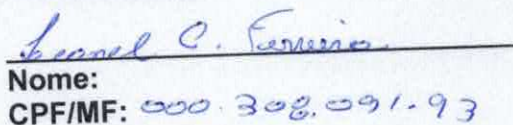 Leonel C. Ferreira
Nome:
CPF/MF: 000.308.091-93